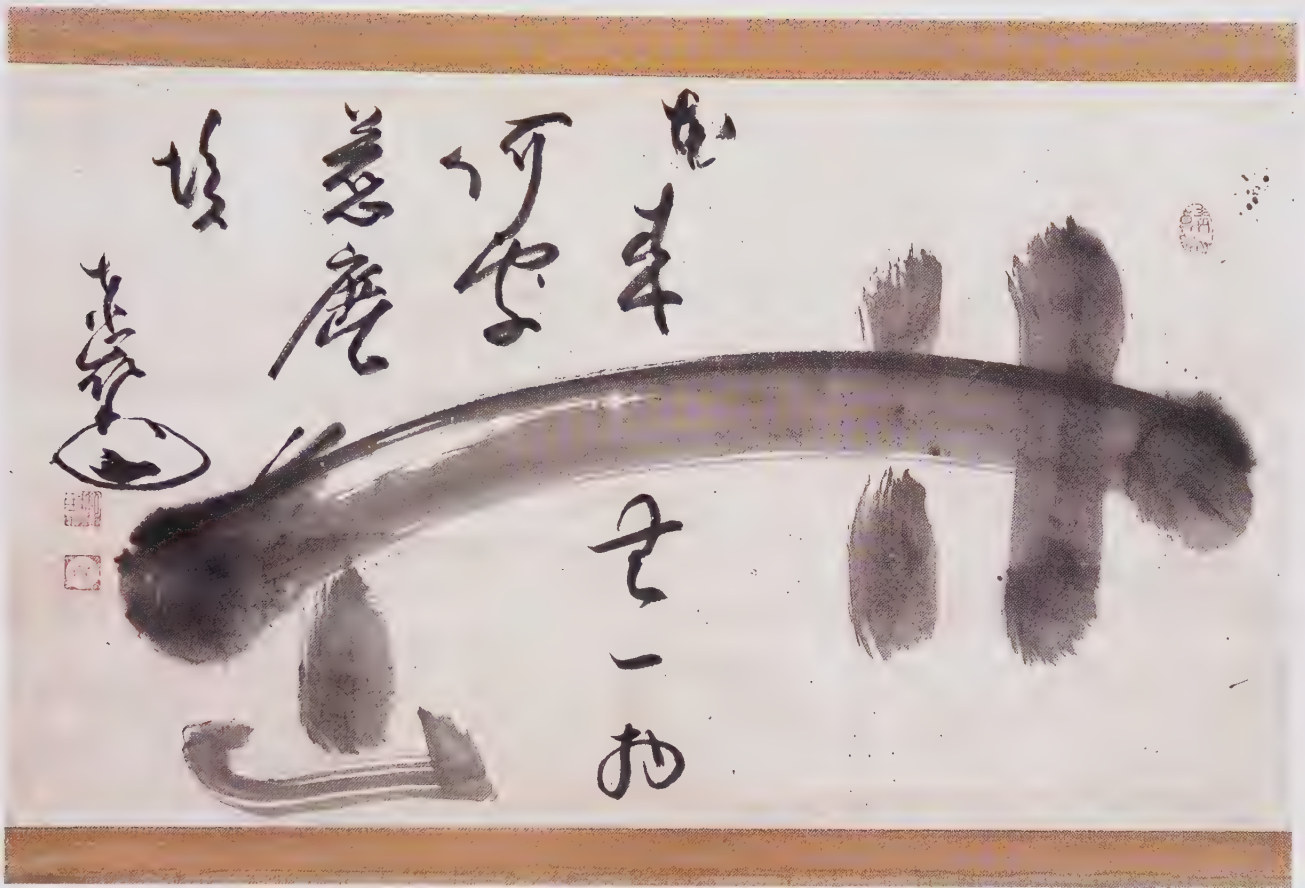 本来無一物
何處
惹塵
埃